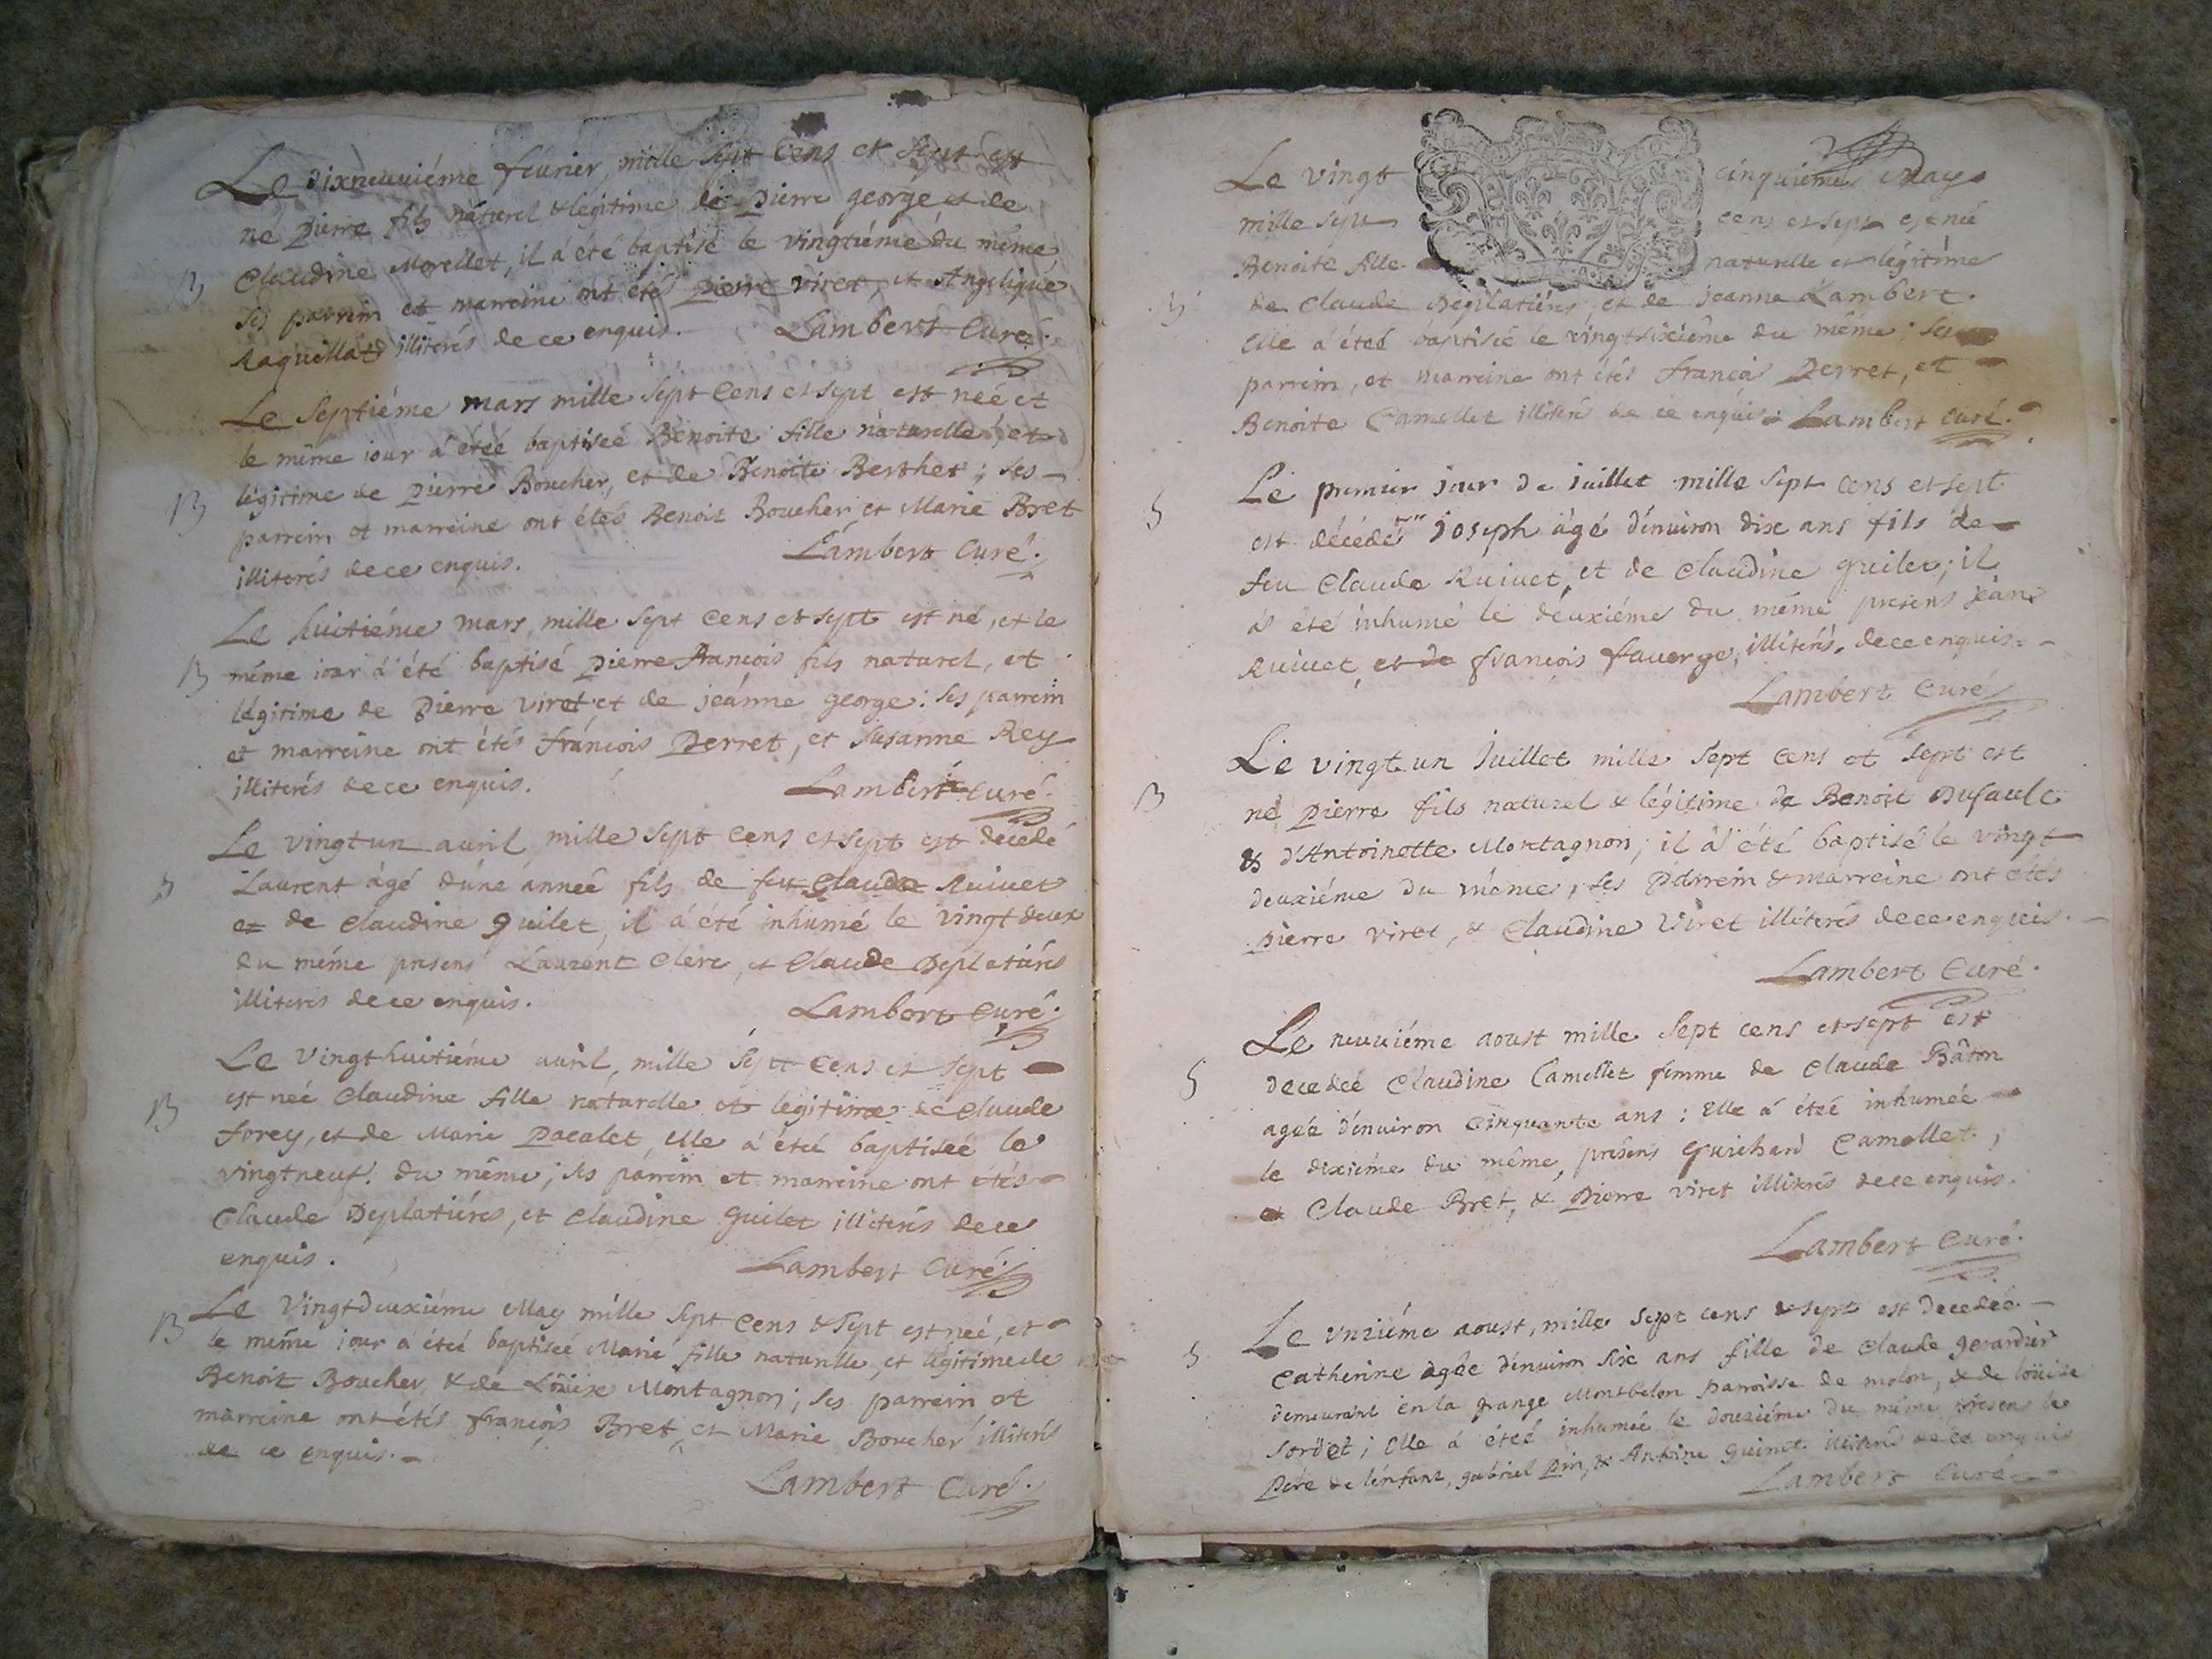 Le dixneuviéme feurier, mille sept cens et sept est
né pierre fils naturel & légitime de pierre george, et de
Claudine Morellet, il á été baptisé le vingtiéme du même
B
ses parrein et marreine ont étés pierre viret, et Angelique
Raquillat illiterés de ce enquis. Lambert Curé.
Le Septiéme mars mille sept cens et sept est neé et
le même iour á éteé baptiseé Benoite fille naturelle, et
légitime de pierre Boucher, et de Benoite Berthet ; ses
B
parrein et marreine ont étés Benoit Boucher et Marie Bret
illiterés de ce enquis. Lambert Curé.
Le huitiéme mars, mille sept cens et sept est né, et le
B même iour á été baptisé pierre françois fils naturel, et
légitime de pierre viret et de jeanne george : ses parrein
et marreine ont étés françois perret, et Susanne Rey
illiterés de ce enquis. Lambert Curé.
Le vingt un auril, mille sept cens et sept est decedé
S Laurent ágé d'une anneé fils de feu Claude Ruiuet
et de Claudine guilet, il á été inhumé le vingt deux
du même presens Laurent Clerc, et Claude Deplatiéres
illiterés de ce enquis. Lambert Curé.
Le Vingthuitiéme auril, mille sept cens et sept
B est neé Claudine fille naturelle et legitime de Claude
forey, et de Marie pacalet, elle á éteé baptiseé le
vingtneuf. du même ; ses parrein et marreine ont étés
Claude Deplatiéres, et Claudine guilet illiterés de ce
enquis. Lambert Curé.
B Le Vingtdeuxiéme May mille sept cens & sept est neé, et
le même iour á éteé baptiseé Marie fille naturelle, et légitime de
Benoit Boucher, & de Loüise Montagnon ; ses parrein et
marreine ont étés françois Bret, et Marie Boucher illiterés
de ce enquis.
Lambert Curé.
Le vingt cinquiéme May
mille sept cens et sept est neé
Benoite fille naturelle et légitime
B de Claude Deplatiéres, et de jeanne Lambert.
elle á éteé baptiseé le vingtsixiéme du même ; ses
parrein, et marreine ont étés françois perret, et
Benoite Camellet illiterés de ce enquis. Lambert Curé.
Le premier jour de iuillet mille sept cens et sept
S
est décédé joseph ágé d'enuiron dix ans fils de
feu Claude Ruiuet, et de Claudine guilet ; il
á été inhumé le deuxiéme du même presens jean
Ruiuet, et de françois fauerge, illiterés, de ce enquis.
Lambert Curé
Le vingt un Juillet mille sept cens et sept est
B né pierre fils naturel & légitime de Benoit Dufault
& d'Antoinette Montagnon ; il á été baptisé le vingt
deuxiéme du même, ses parrein & marreine ont étés
pierre viret, & Claudine Viret illiterés de ce enquis.
Lambert Curé.
Le neuuiéme aoust mille sept cens et sept est
S decedeé Claudine Camellet femme de Claude Bâton
ageé d'enuiron cinquante ans : elle á éteé inhumée
le dixiéme du même, presens guichard Camellet,
et Claude Bret, & pierre viret illiterés de ce enquis.
Lambert Curé.
Le vnziéme aoust, mille sept cens & sept est decedeé
S
Catherine ageé d'enuiron six ans fille de Claude gerardier
demeurant en la grange Montbelon parroisse de molon, & de loüise
Sordet ; elle á éteé inhumée le douziéme du même presens le
pere de l'enfant, gabriel pin, & Antoine guinet illiterés de ce enquis
Lambert Curé